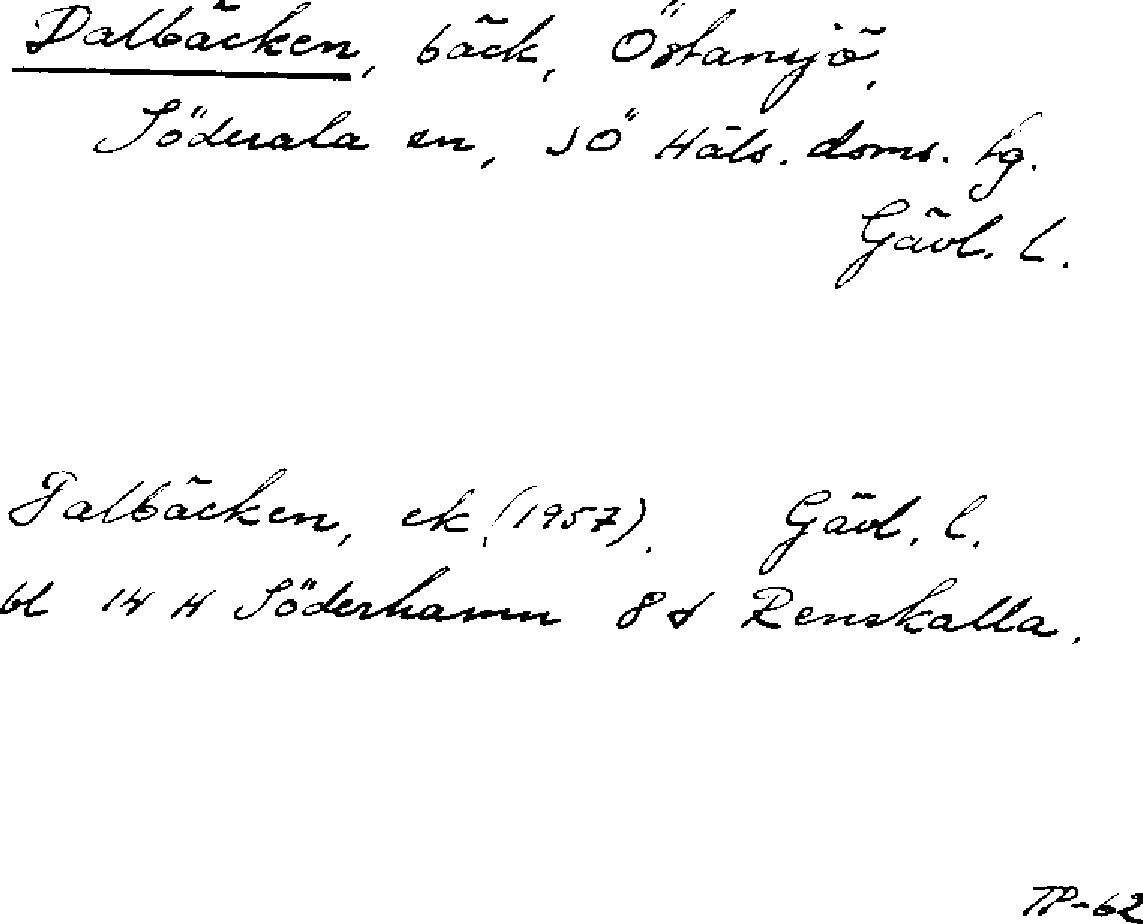 Dalbäcken, bäck, Östansjö,
Söderala sn, SÖ Häls. doms. hg.
Gävl. l.
Dalbäcken, ek. (1957). Gävl. l.
bl 14 H Söderhamn 8 d Renskalla.
TP-62